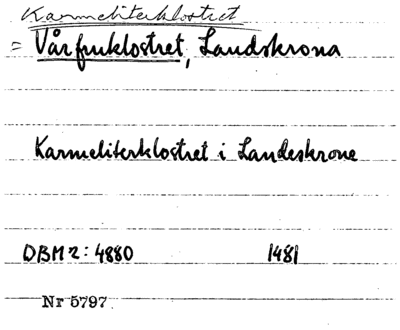 Karmeliterklostret
= Vårfruklostret, Landskrona
Karmeliterklostret i Landeskrone
DBM 2: 4880 1481
Nr 5797